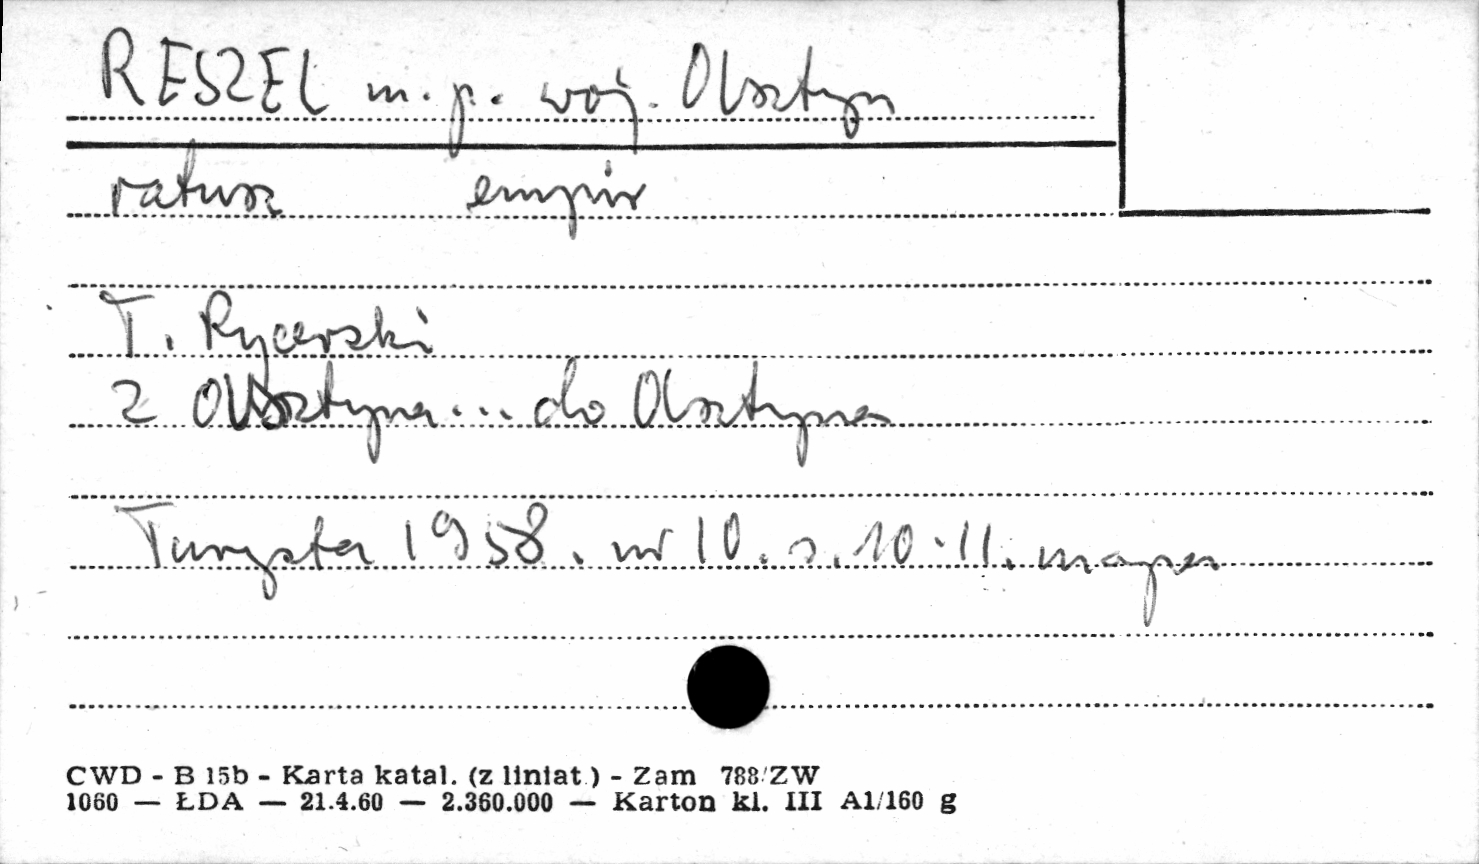 RESZEL m. p. woj. Olsztyn
ratusz empir
T. Rycerski
Z Olsztyna... do Olsztyna
Turysta 1958. nr 10. s. 10-11. mapa
CWD - B 15b - Karta katal. (z liniat.) - Zam 788/ZW
1060 — ŁDA — 21.4.60 — 2.360.000 — Karton kl. III A1/160 g